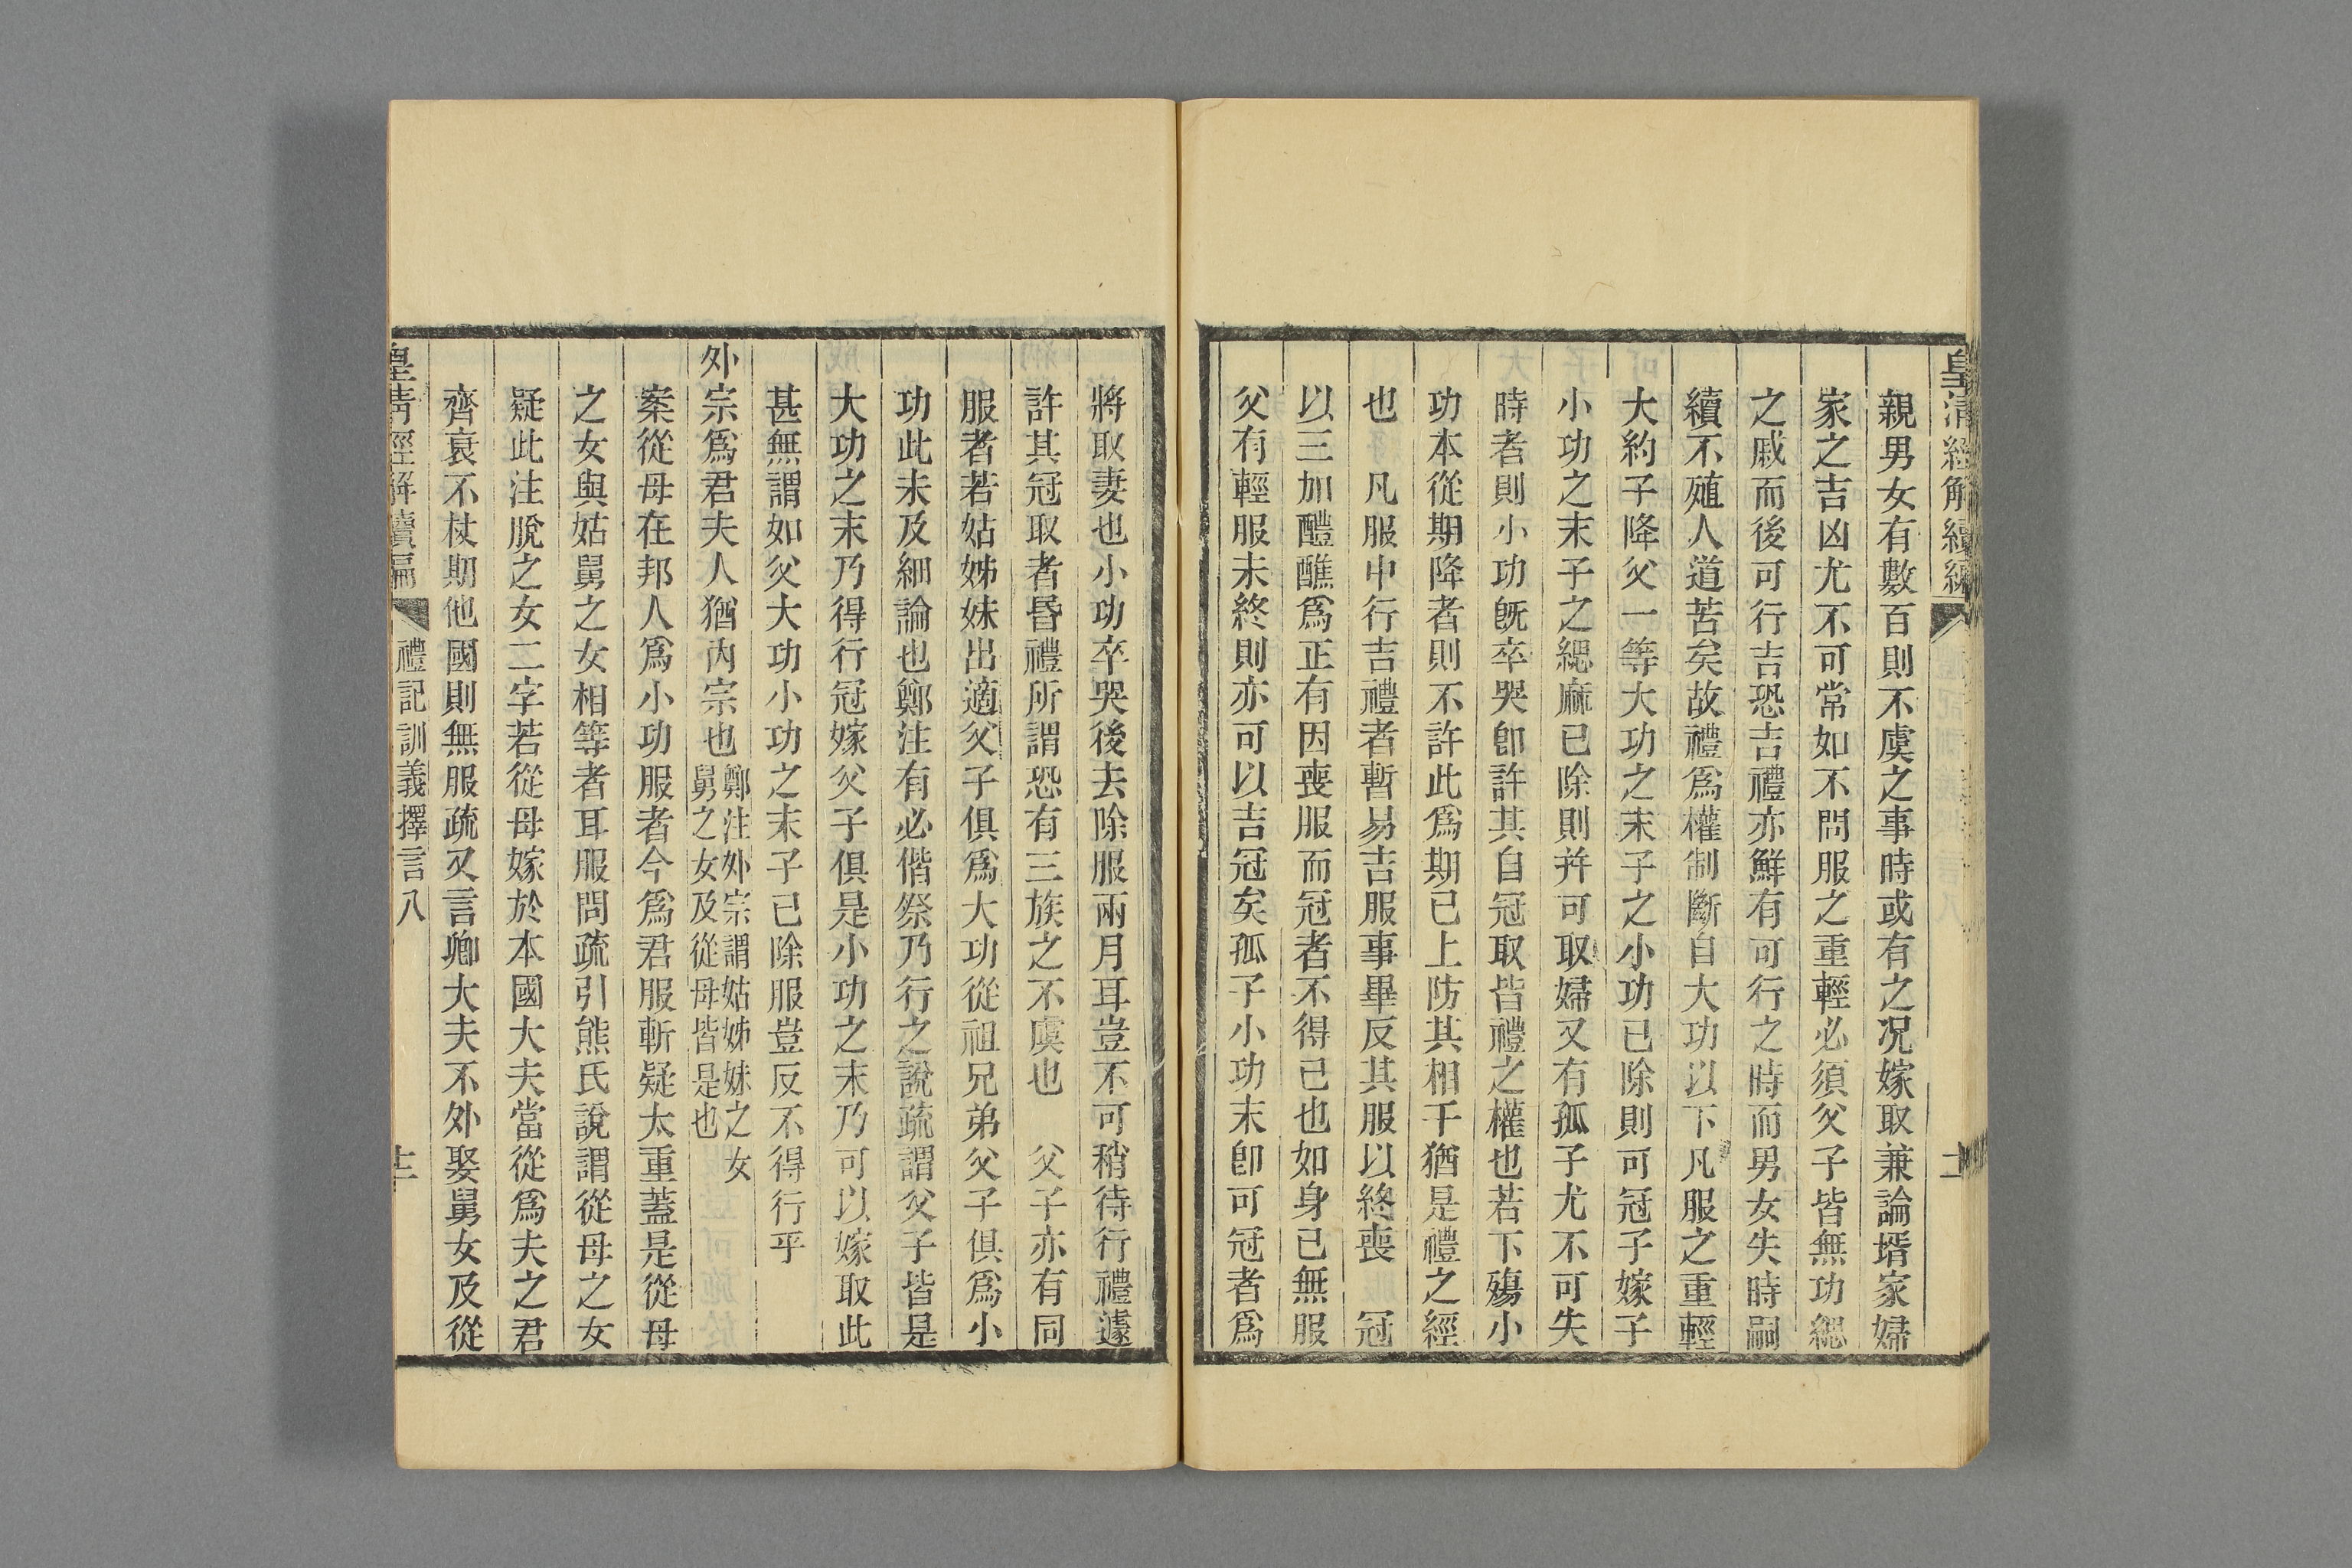 皇清經解續編
親男女有數百則不虞之事時或有之况嫁取兼論壻家婦
家之吉凶尤不可常如不問服之重輕必須父子皆無功緦
之戚而後可行吉恐吉禮亦鮮有可行之時而男女失時嗣
續不殖人道苦矣故禮爲權制斷自大功以下凡服之重輕
大約子降父一等大功之末子之小功已除則可冠子嫁子
小功之末子之緦麻已除則并可取婦又有孤子尤不可失
時者則小功旣卒哭卽許其自冠取皆禮之權也若下殤小
功本從期降者則不許此爲期已上防其相干猶是禮之經
也　凡服中行吉禮者暫易吉服事畢反其服以終喪　冠
以三加醴醮爲正有因喪服而冠者不得已也如身已無服
父有輕服未終則亦可以吉冠矣孤子小功末卽可冠者爲
將取妻也小功卒哭後去除服兩月耳豈不可稍待行禮遽
許其冠取者昏禮所謂恐有三族之不虞也　父子亦有同
服者若姑姊妹出適父子俱爲大功從祖兄弟父子俱爲小
功此未及細論也鄭注有必偕祭乃行之說疏謂父子皆是
大功之末乃得行冠嫁父子俱是小功之末乃可以嫁取此
甚無謂如父大功小功之末子已除服豈反不得行乎
外宗爲君夫人猶內宗也鄭注外宗謂姑姊妹之女
舅之女及從母皆是也
案從母在邦人爲小功服者今爲君服斬疑太重蓋是從母
之女與姑舅之女相等者耳服問疏引熊氏說謂從母之女
疑此注脫之女二字若從母嫁於本國大夫當從爲夫之君
齊衰不杖期他國則無服疏又言卿大夫不外娶舅女及從
皇清經解續編
禮記訓義擇言八
十二